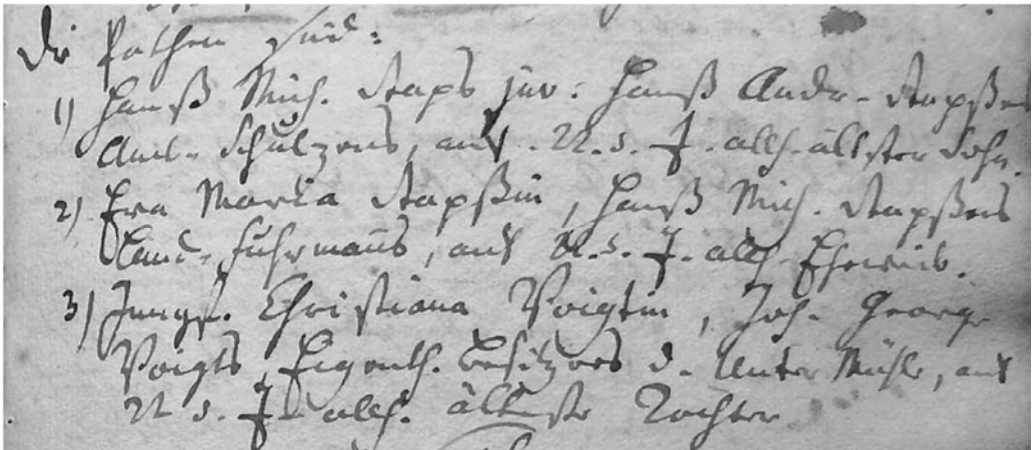 Die Pathen sind:
1) Hanß Mich. Staps juv: Hanß Andr. Stapßens
Amts-Schulzens, auf. N. d. J. allh. ältster Sohn.
2) Eva Maria Stapßin, Hanß Mich. Stapßens
Land-Fuhrmans, auf N. d. J. allh. Eheweib.
3) Jungf. Christiana Voigtin, Joh. George
Voigts, Eigenth. Besitzers d. Unter Mühle, auf
N d. J. allh. älteste Tochter